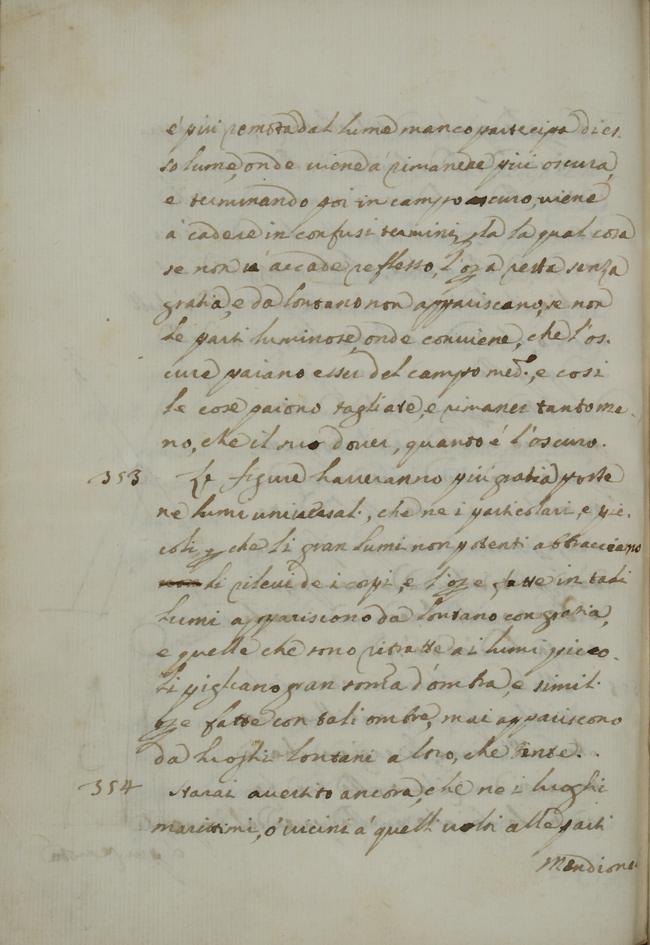 é piú remota dal lume manco partecipa di es-
so lume, onde uiene á rimanere piú oscura,
e terminando poi in campo oscuro, uiene
á cadere in confusi termini, da la qual cosa
se non ui accade reflesso, l'opa resta senza
gratia, e da lontano non appariscano, se non
le parti luminose, onde conviene, che l'os-
cure paiano esser del campo med.o, e cosi
le cose paiono tagliate, e rimaner tanto me-
no, che il suo dover, quanto é l'oscuro.
353 Le figure haueranno piú gratia poste
ne lumi uniuersal., che ne i particolari, e pic-
coli, che li gran lumi non potenti abbracciano
li rilevi de i corpi, e l'ope fatte in tali
lumi appariscono da lontano con gratia,
e quelle che sono ritratte a i lumi picco-
li pigliano gran soma d'ombra, e simil.
ope fatte con tali ombre, mai appariscono
da luoghi lontani altro, che tinte.
354 Starai avertito ancora, che ne i luoghi
marittimi, ó uicini á quelli uolti alle parti
Meridiona